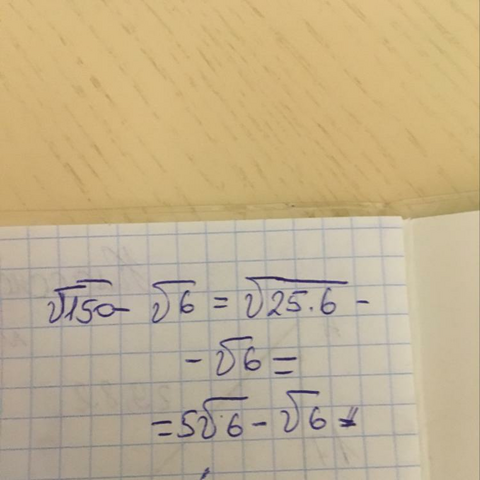 √150 - √6 = √25·6 -
- √6 =
= 5√6 - √6 =